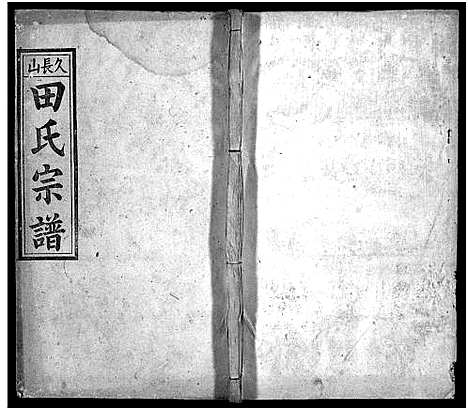 久長山
田氏宗譜